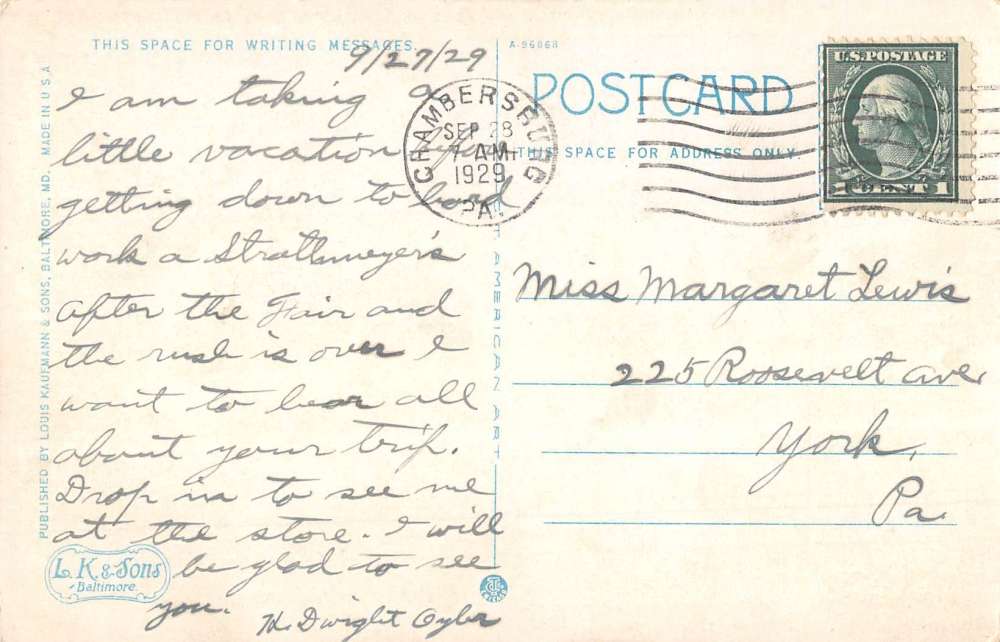 THIS SPACE FOR WRITING MESSAGES.
9/27/29
I am taking a
little vacation
getting down to hard
work a Strathmeyer's
after the Fair and
the rush is over I
want to hear all
about your trip.
Drop in to see me
at the store. I will
be glad to see
you.
H. Dwight Oyler
PUBLISHED BY LOUIS KAUFMANN & SONS, BALTIMORE, MD. MADE IN U S A
L. K. & Sons
Baltimore.
AMERICAN ART
A-96068
POSTCARD
THIS SPACE FOR ADDRESS ONLY.
CHAMBERSBURG
SEP 28
7 AM
1929
PA.
U.S. POSTAGE
1 CENT 1
Miss Margaret Lewis
225 Roosevelt ave
York,
Pa.